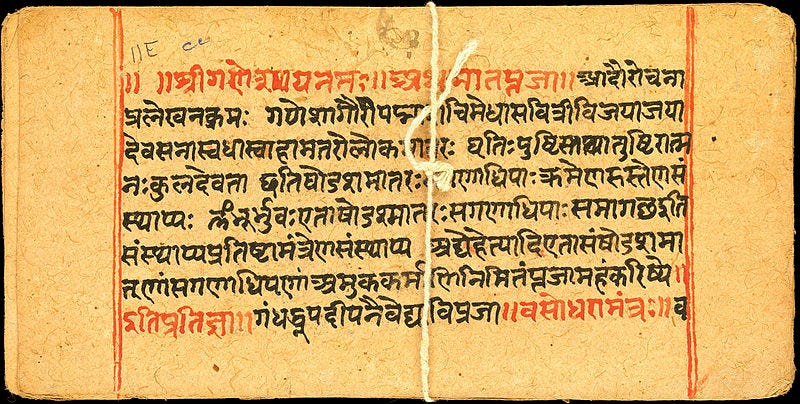 ||E cc
॥ ॥श्रीगणेशाय नमः॥अथ मातृपूजा॥आदौरोचना
प्रलेखनक्रमः गणेशागौरीपद्मा चिमेधासवित्रीविजयाजया
देवसेनास्वधास्वाहामतरोलोकमातरः धृतिःपुष्टिस्तथातुष्टिरात्म
नःकुलदेवता इतिषोडशमातरः गणाधिपाःक्रमेणहस्तेणसं
स्थाप्यः ॐभूर्भुवःएताषोडशमातरःसगणाधिपाःसमागछइति
संस्थाप्यप्रतिष्टामंत्रेणसंस्थाप्य अद्येहेत्यादिएतासंषोडशमा
तॄणांसगणाधिपणां अमुककर्मणिनिमितंपूजामहंकरिष्ये॥
इतिप्रतिज्ञा॥गंधधूपदीपनैवेद्य विपूजा॥वसोधरामंत्रः॥व